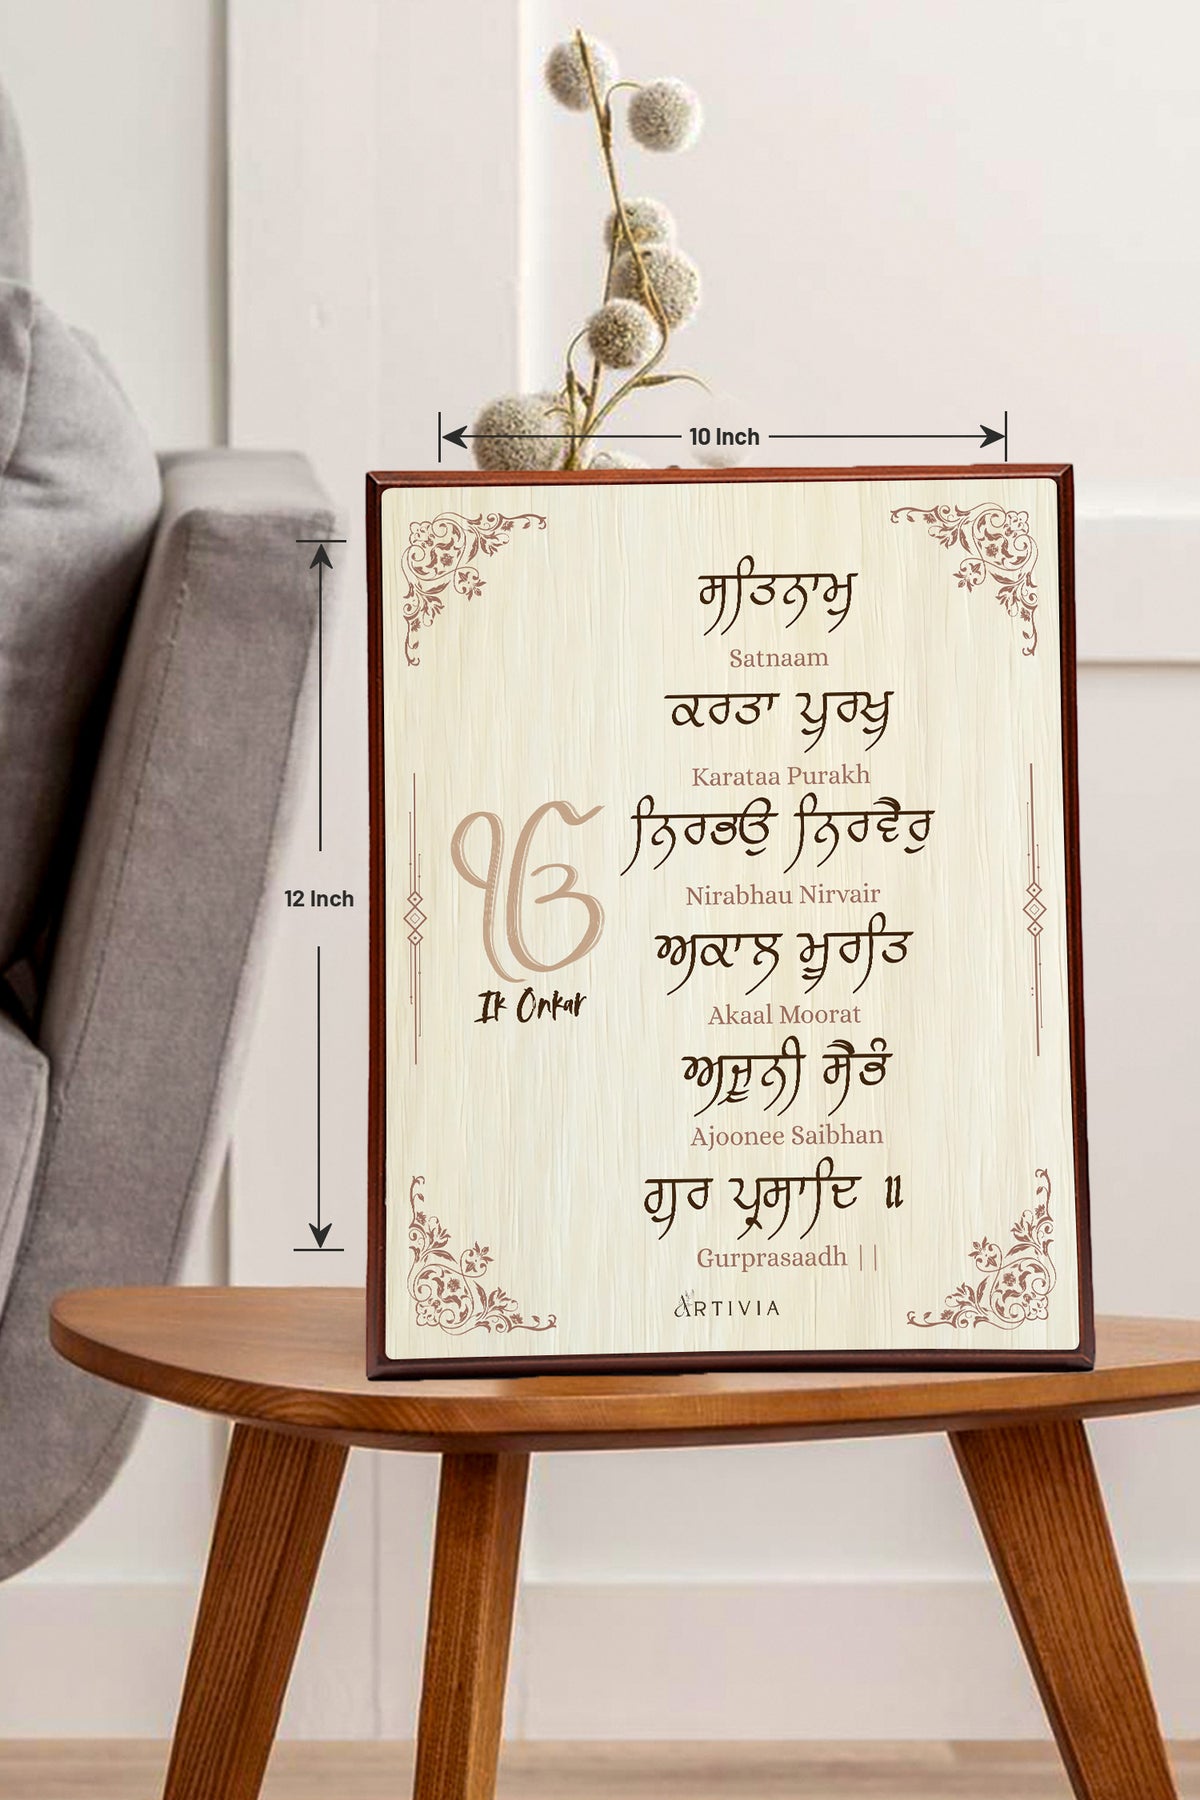 10 Inch
12 Inch
ੴ
Ik Onkar
ਸਤਿਨਾਮੁ
Satnaam
ਕਰਤਾ ਪੁਰਖੁ
Karataa Purakh
ਨਿਰਭਉ ਨਿਰਵੈਰੁ
Nirabhau Nirvair
ਅਕਾਲ ਮੂਰਤਿ
Akaal Moorat
ਅਜੂਨੀ ਸੈਭੰ
Ajoonee Saibhan
ਗੁਰ ਪ੍ਰਸਾਦਿ ॥
Gurprasaadh ||
ARTIVIA